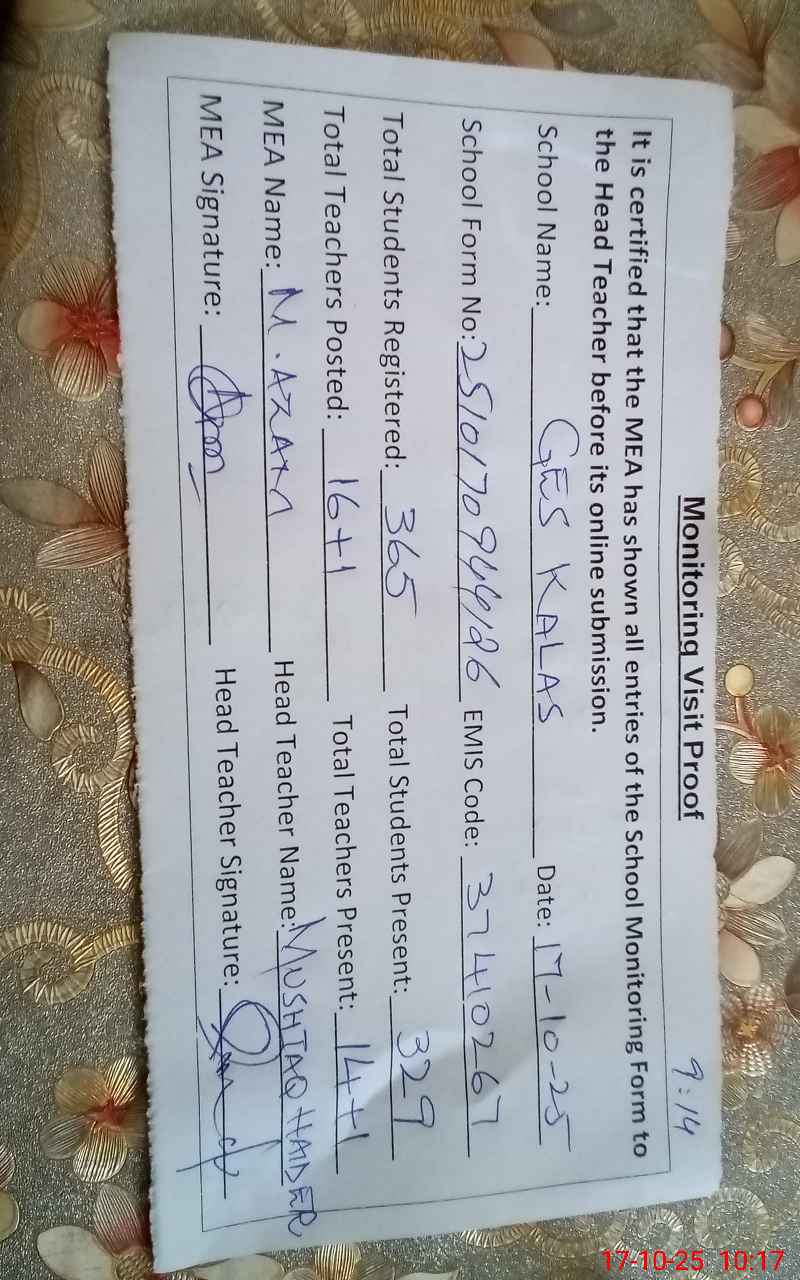 9:14
Monitoring Visit Proof
It is certified that the MEA has shown all entries of the School Monitoring Form to
the Head Teacher before its online submission.
School Name: GES KALAS Date: 17-10-25
School Form No: EMIS Code: 37410267
Total Students Registered: 365 Total Students Present: 329
Total Teachers Posted: 16+1 Total Teachers Present: 14+1
MEA Name: M. AZAM Head Teacher Name: MUSHTAQ HAIDER
MEA Signature: Head Teacher Signature:
17-10-25 10:17